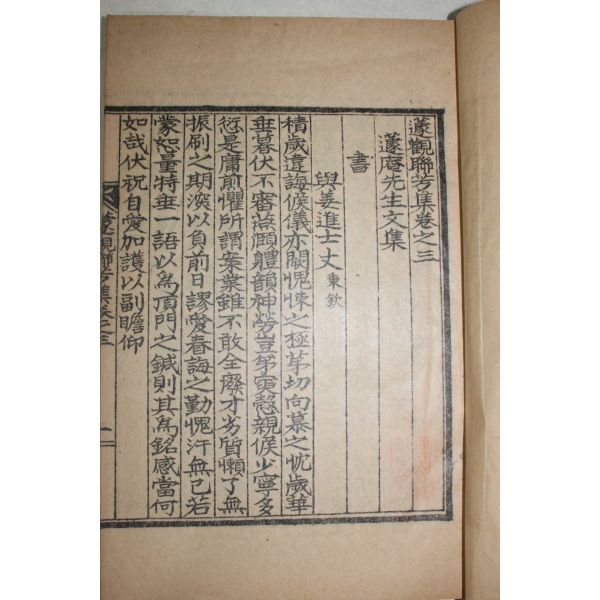 蓬觀聯芳集卷之三
蓬庵先生文集
書
與姜進士丈 東欽
積歲違誨候儀亦闕愧悚之極茅切向慕之忱歲華
垂暮伏不審燕頤軆韻神勞豈苐宲慰親候少寧多
愆是庸煎懼所謂案業雖不敢全廢才劣質懶了無
振刷之期深以負前日謬愛眷誨之勤愧汗無已若
蒙恕量特垂一語以爲頂門之鍼則其爲銘感當何
如哉伏祝自愛加護以副瞻仰
觀聯芳集卷之三